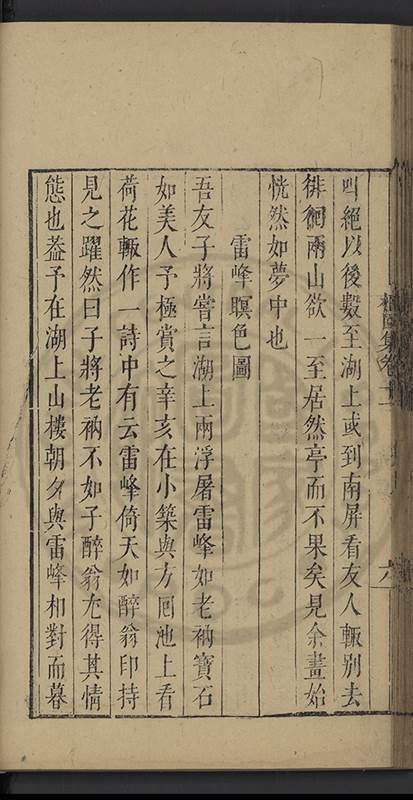 叫絕以後數至湖上或到南屏看友人輒別去
徘徊兩山欲一至居然亭而不果矣見余畫始
恍然如夢中也
雷峰暝色圖
吾友子將嘗言湖上兩浮屠雷峰如老衲寶石
如美人予極賞之辛亥在小築與方囘池上看
荷花輒作一詩中有云雷峰倚天如醉翁印持
見之躍然曰子將老衲不如子醉翁尢得其情
態也葢予在湖上山樓朝夕與雷峰相對而暮
集卷十二
六